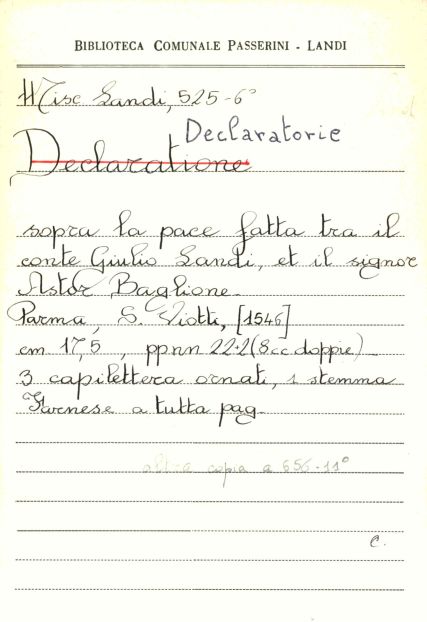 BIBLIOTECA COMUNALE PASSERINI - LANDI
Misc Landi, 525-6°
Declaratorie
Declaratione
sopra la pace fatta tra il
conte Giulio Landi, et il signor
Astor Baglione.
Parma, S. Viotti, [1546]
cm 17,5, ppnn 22+2(8cc doppie)
3 capilettera ornati, 1 stemma
Farnese a tutta pag.
altra copia a 656-11°
C.